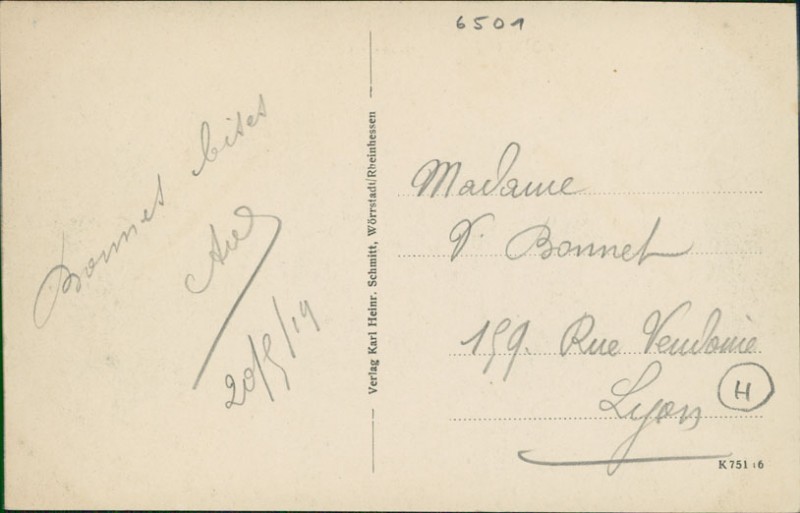 6501
Bonnes bises
20/5/19
Verlag Karl Heinr. Schmitt, Wörrstadt/Rheinhessen
Madame
V. Bonnet
159. Rue Vendome
Lyon
H
K 751 : 6